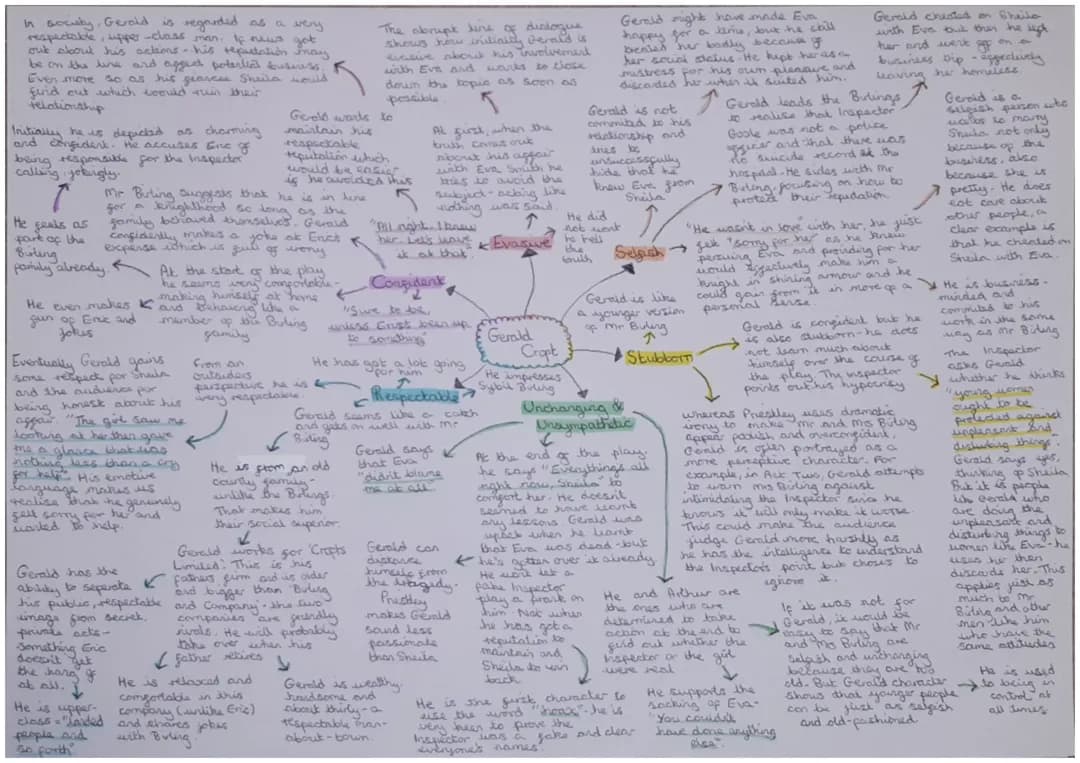 In society, Gerald is regarded as a very
respectable, upper-class man. If news got
out about his actions - his reputation may
be on the line and affect potential business.
Even more so as his fiancée Sheila would
find out which would ruin their
relationship
The abrupt line of dialogue
shows how initially Gerald is
evasive about his involvement
with Eva and wants to close
down the topic as soon as
possible.
Gerald might have made Eva
happy for a time, but he still
treated her badly because of
her social status. He kept her as a
mistress for his own pleasure and
discarded her when it suited him.
Gerald cheated on Sheila
with Eva but then he left
her and went off on a
business trip - effectively
leaving her homeless
Initially he is depicted as charming
and confident. He accuses Eric of
being responsible for the Inspector
calling, jokingly.
Gerald wants to
maintain his
respectable
reputation which
would be easier
if he avoided this
At first, when the
truth comes out
about his affair
with Eva Smith he
tries to avoid the
subject - acting like
nothing was said.
Gerald is not
commited to his
relationship and
tries to
unsuccessfully
hide that he
knew Eva from
Sheila
Gerald leads the Birlings
to realise that Inspector
Goole was not a police
officer and that there was
no suicide record at the
hospital. He sides with Mr
Birling, focusing on how to
protect their reputation.
Gerald is a
selfish person who
wants to marry
Sheila not only
because of the
business, also
because she is
pretty. He does
not care about
other people, a
clear example is
that he cheated on
Sheila with Eva.
Mr Birling suggests that he is in line
for a knighthood so long as the
family behaved themselves. Gerald
confidently makes a joke at Eric's
expense which is full of irony
He feels as
part of the
Birling
family already.
"All right, I knew
her. Let's leave
it at that.
Evasive
He did
not want
to tell
the
truth
Selfish
"He wasn't in love with her, he just
felt "sorry for her" as he knew
persuing Eva and providing for her
would effectively make him a
knight in shining armour and he
could gain from it in more of a
personal sense.
At the start of the play
he seems very comfortable -
making himself at home
and behaving like a
member of the Birling
family
Confident
"Sure to be,
unless Eric's been up
to something"
He even makes
fun of Eric and
jokes
Gerald
Croft
Gerald is like
a younger version
of Mr Birling
Stubborn
Gerald is confident but he
is also stubborn - he does
not learn much about
himself over the course of
the play. The inspector
points out his hyposrisy
He is business-
minded and
commited to his
work in the same
way as Mr Birling
The Inspector
asks Gerald
whether he thinks
"young women
ought to be
protected against
unpleasant and
disturbing things"
Gerald says yes,
thinking of Sheila
But it is people
like Gerald who
are doing the
unpleasant and
disturbing things to
women like Eva - he
uses her then
discards her. This
applies just as
much to Mr
Birling and other
men like him
who have the
same attitudes
Eventually Gerald gains
some respect for Sheila
and the audience for
being honest about his
affair. "The girl saw me
looking at her then gave
me a glance that was
nothing less than a cry
for help". His emotive
language makes us
realise that he genuinely
felt sorry for her and
wanted to help.
From an
outsiders
perspective he is
very respectable.
He has got a lot going
for him
Respectable
He impresses
Sybil Birling
Gerald seems like a catch
and gets on well with Mr
Birling
He is from an old
country family -
unlike the Birlings.
That makes him
their social superior.
Unchanging &
Unsympathetic
Gerald says
that Eva
"didn't blame
me at all.
At the end of the play
he says "Everything's all
right now, Sheila" to
comfort her. He doesn't
seemed to have learnt
any lessons Gerald was
upset when he learnt
that Eva was dead - but
he's gotten over it already.
He wont let a
fake Inspector
play a prank on
him. Not when
he has got a
reputation to
maintain and
Sheila to win
back
whereas Priestley uses dramatic
irony to make Mr and Mrs Birling
appear foolish and overconfident,
Gerald is often portrayed as a
more perceptive character. For
example, in Act Two, Gerald attempts
to warn Mrs Birling against
intimidating the Inspector since he
knows it will only make it worse
This could make the audience
judge Gerald more harshly as
he has the intelligence to understand
the Inspector's point but choses to
ignore it.
Gerald has the
ability to seperate
his public, respectable
image from secret,
private acts -
something Eric
doesn't get
the hang of
at all.
Gerald works for 'Crofts
Limited'. This is his
fathers firm and is older
and bigger than 'Birling
and Company' - the two
companies are friendly
rivals. He will probably
take over when his
father retires
Gerald can
distance
himself from
the tragedy.
Priestley
makes Gerald
sound less
passionate
than Sheila
He and Arthur are
the ones who are
determined to take
action at the end to
find out whether the
Inspector or the girl
were real
If it was not for
Gerald, it would be
easy to say that Mr
and Mrs Birling are
selfish and unchanging
because they are
old. But Gerald character
shows that younger people
can be just as selfish
and old-fashioned.
He is used
to being in
control at
all times
He is upper-
class - "landed
people and
so forth"
He is relaxed and
comfortable in this
company (unlike Eric)
and shares jokes
with Birling.
Gerald is wealthy,
handsome and
about thirty - a
respectable man-
about-town.
He is the first character to
use the word "hoax" - he is
very keen to prove the
Inspector was a fake and clear
everyone's names.
He supports the
sacking of Eva -
"You couldn't
have done anything
else".